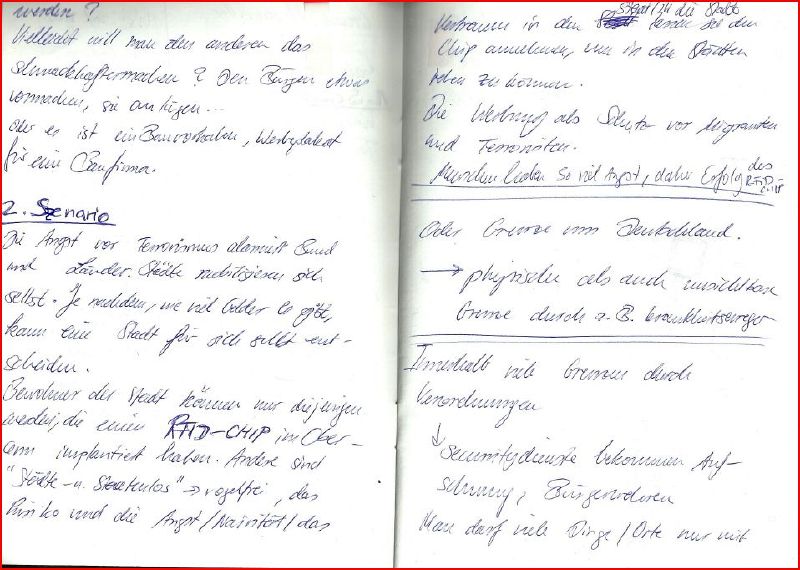 werden?
Vielleicht will man den anderen das
schmackhaftermachen? Den Bürgern etwas
vormachen, sie anlügen...
Oder es ist ein Bauvorhaben,
für eine Baufirma.
2. Szenario
Die Angst vor Terrorismus dominiert Bund
und Länder. Städte mobilisieren sich
selbst. Je nachdem, wie viel Gelder es gibt,
kann eine Stadt für sich selbst ent-
scheiden.
Bewohner der Stadt können nur diejenigen
werden, die einen RFID-CHIP im Ober-
arm implantiert haben. Andere sind
"Städte- u. Staatenlos" → vogelfrei, das
Risiko und die Angst/Naivität/das
Vertrauen in den Staat/in die Stadt
Chip annehmen, um in den Städten
leben zu können.
Die Werbung als Schutz vor Migranten
und Terroristen.
Menschen haben so viel Angst, daher Erfolg des
RFID-
Oder Grenze um Deutschland.
→ physische als auch unsichtbare
Grenze durch z.B. Krankheitserreger
Innerhalb viele Grenzen durch
Verordnungen
↓ Securitydienste bekommen Auf-
schwung, Bürgerwehren
Man darf viele Dinge/Orte nur mit